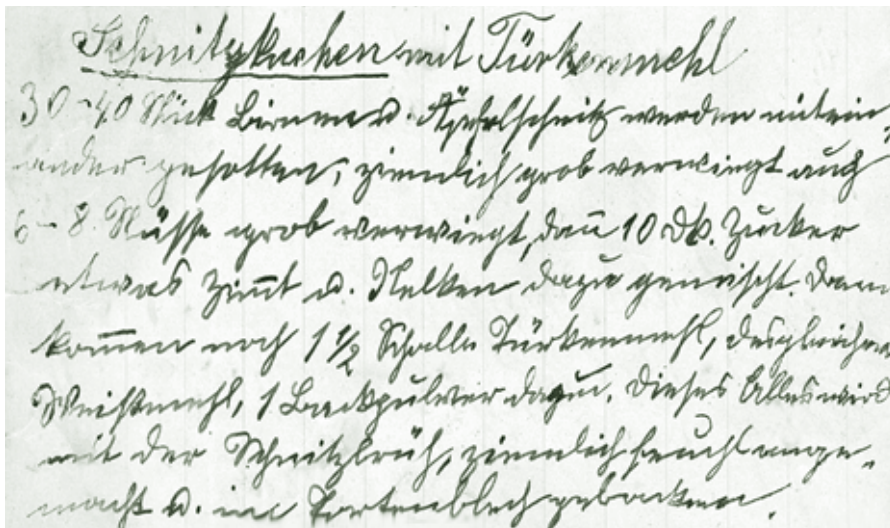 Schnitzkuchen mit Türkenmehl
30-40 Stück Birnen u. Äpfelschnitz werden mitein-
ander gesotten, ziemlich grob verwiegt auch
6-8 Nüsse grob verwiegt, dan̄ 10 Dk. Zucker
etwas Zim̄t u. Nelken dazu gemischt. Dann
kom̄en noch 1 1/2 Schalle Türkenmehl, desgleichen
Weißmehl, 1 Backpulver dazu. Dieses Alles wird
mit der Schnitzbrüh, ziemlich feucht ange-
macht u. im Tortenblech gebacken.